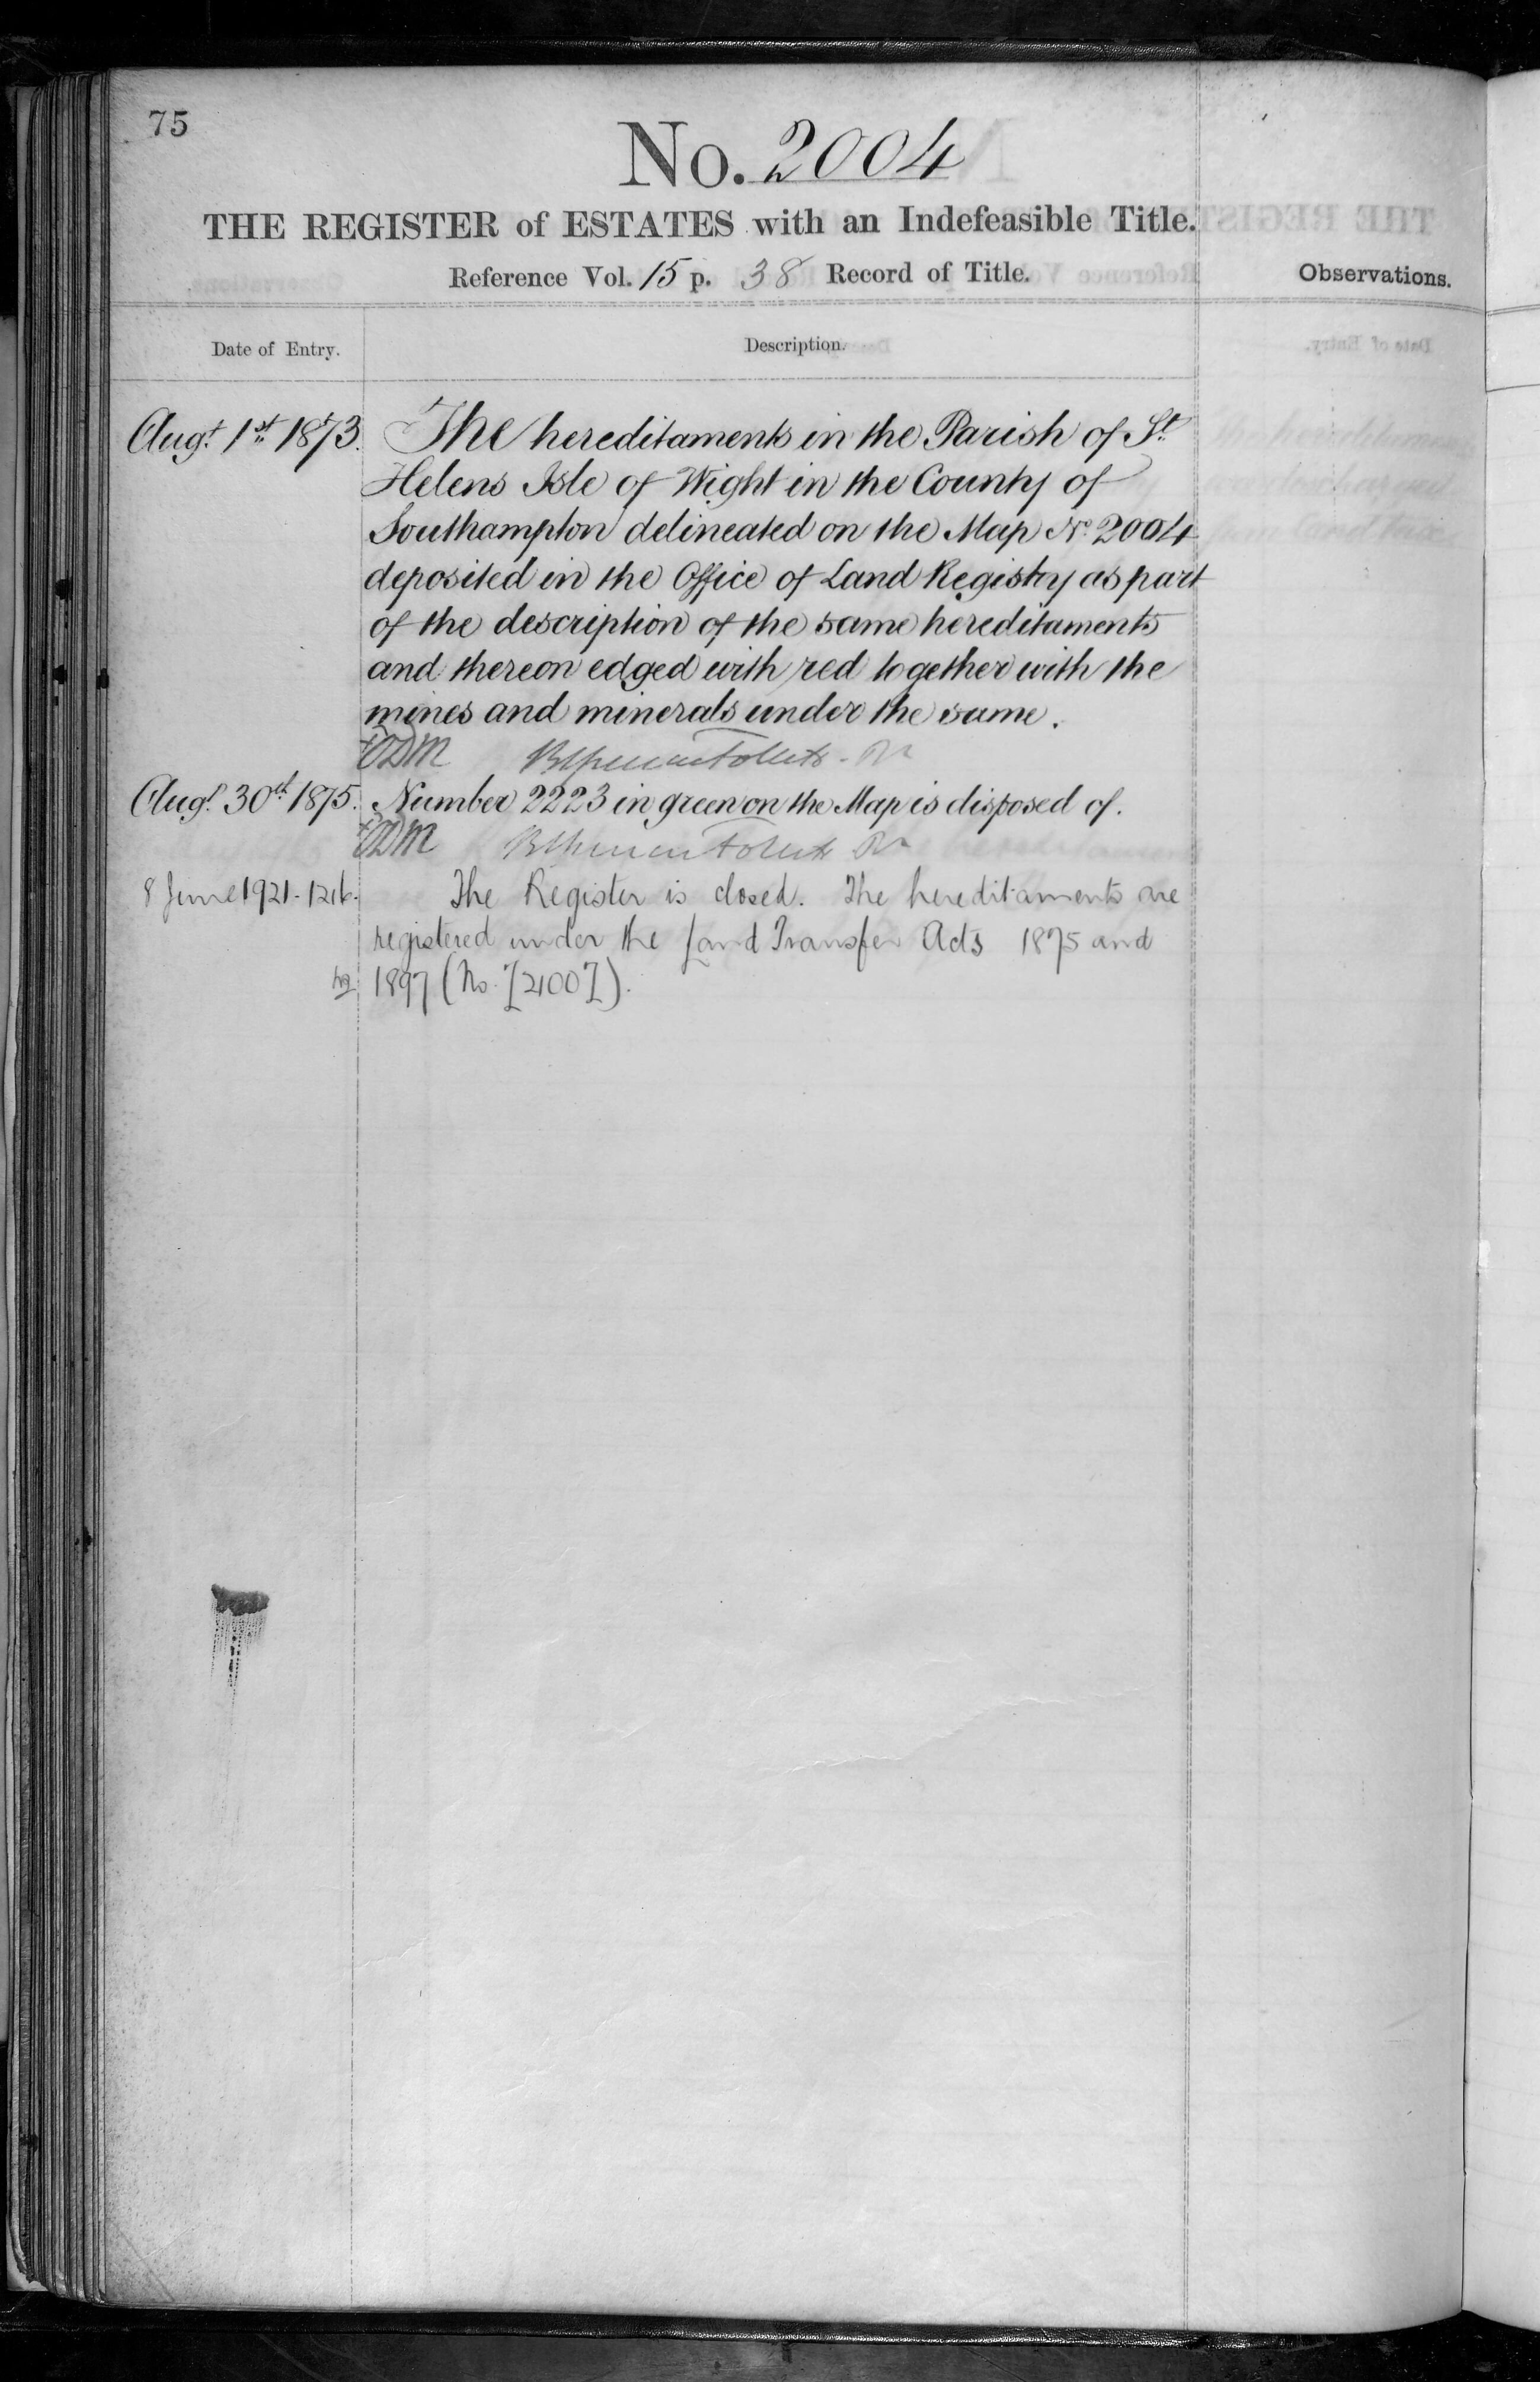 75
No. 2004
THE REGISTER of ESTATES with an Indefeasible Title.
Reference Vol. 15 p. 38 Record of Title.
Observations.
Date of Entry.
Description.
Augt. 1st 1873. The hereditaments in the Parish of St.
Helens Isle of Wight in the County of
Southampton delineated on the Map No. 2004
deposited in the Office of Land Registry as part
of the description of the same hereditaments
and thereon edged with red together with the
mines and minerals under the same.
Augt. 30th 1875. Number 2223 in green on the Map is disposed of.
8 June 1921. The Register is closed. The hereditaments are
registered under the Land Transfer Acts 1875 and
1897 (No.